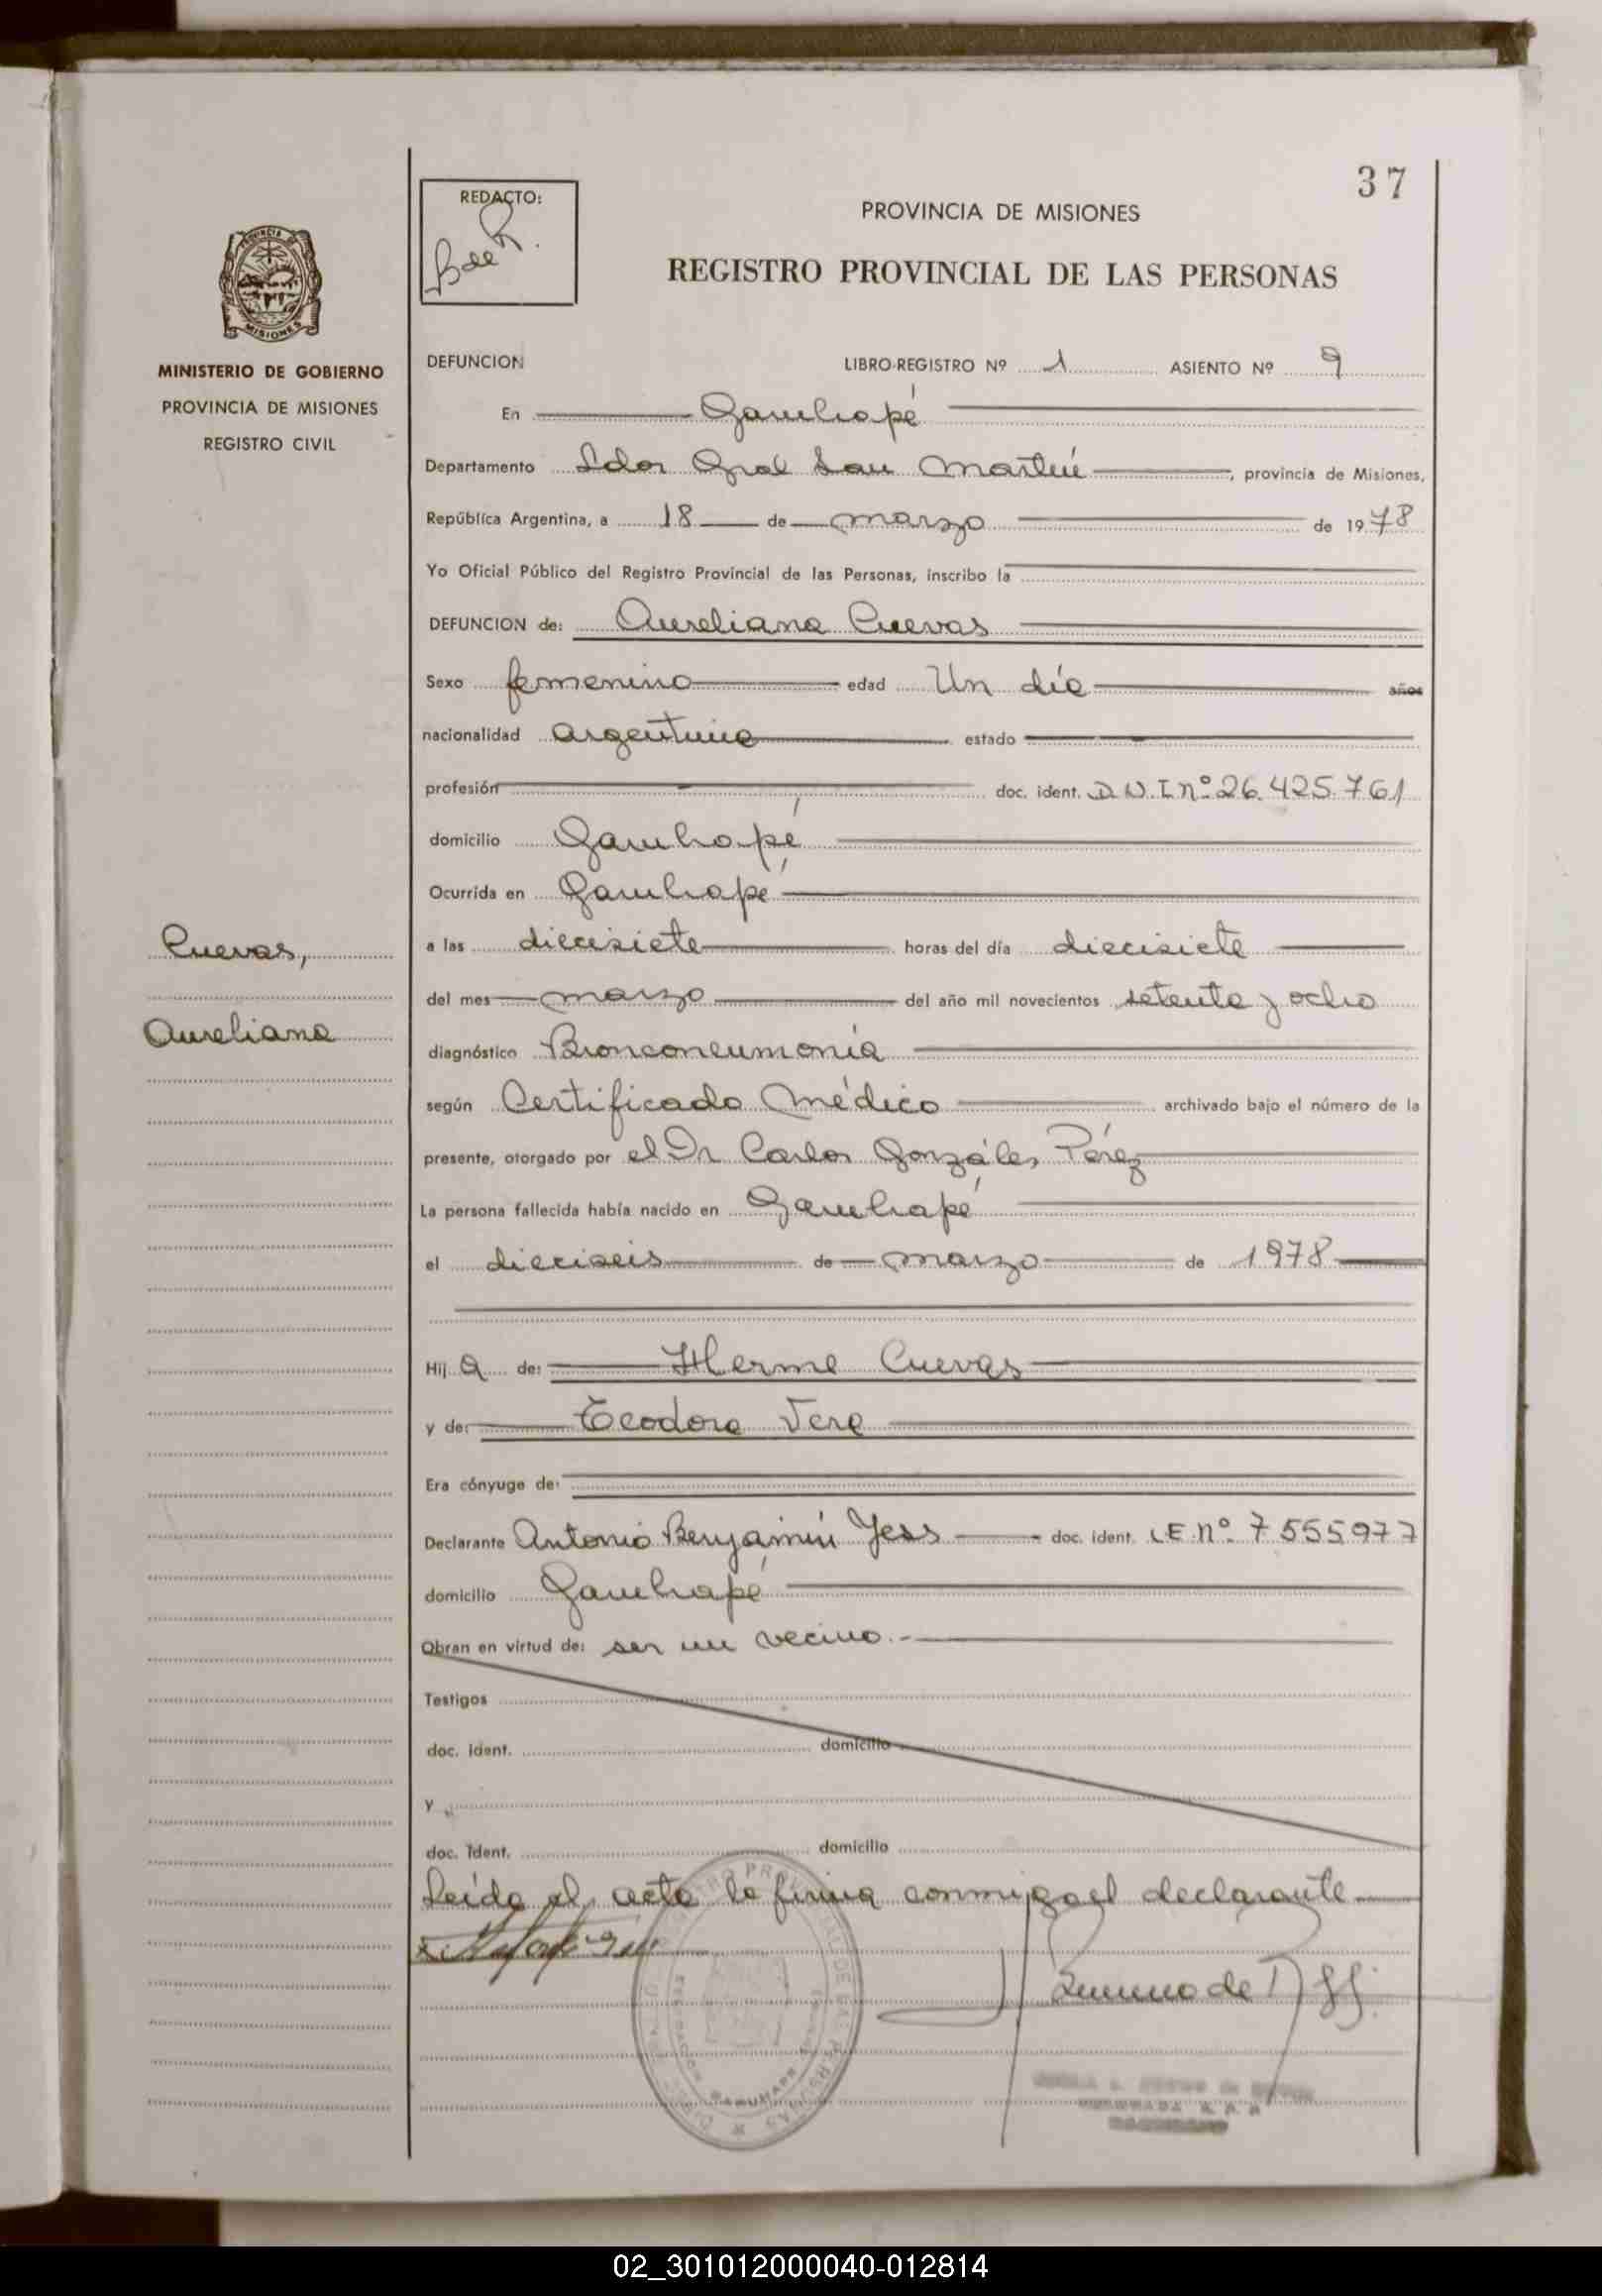 37
REDACTO:
B de R.
PROVINCIA DE MISIONES
REGISTRO PROVINCIAL DE LAS PERSONAS
PROVINCIA DE
MISIONES
MINISTERIO DE GOBIERNO
PROVINCIA DE MISIONES
REGISTRO CIVIL
DEFUNCION LIBRO-REGISTRO Nº 1 ASIENTO Nº 9
En Garuhapé
Departamento Ldor Gral San Martín, provincia de Misiones,
República Argentina, a 18 de marzo de 1978
Yo Oficial Público del Registro Provincial de las Personas, inscribo la
DEFUNCION de: Aureliana Cuevas
Sexo femenino edad Un día años
nacionalidad argentina estado
profesión doc. ident. D.N.I nº 26.425.761
domicilio Garuhapé
Ocurrida en Garuhapé
Cuevas,
a las diecisiete horas del día diecisiete
del mes marzo del año mil novecientos setenta y ocho
Aureliana
diagnóstico Bronconeumonía
según Certificado Médico archivado bajo el número de la
presente, otorgado por el Dr Carlos Gonzáles Pérez
La persona fallecida había nacido en Garuhapé
el dieciseis de marzo de 1978
Hij a de: Herme Cuevas
y de: Teodora Vera
Era cónyuge de:
Declarante Antonio Benjamín Jess doc. ident. L.E. nº 7555977
domicilio Garuhapé
Obran en virtud de: ser un vecino.-
Testigos
doc. ident. domicilio
y
doc. ident. domicilio
Leída el acta la firma conmigo el declarante
de R
GARUHAPE
02_301012000040-012814